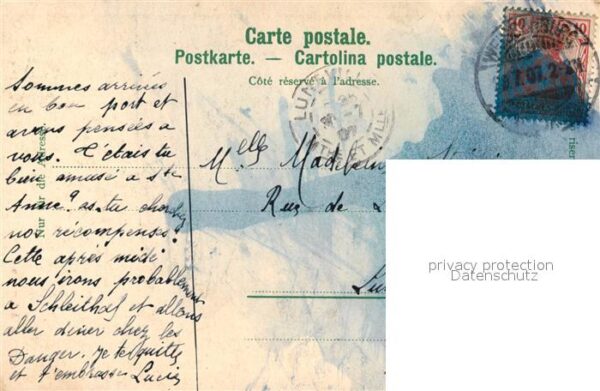 Carte postale.
Postkarte. — Cartolina postale.
Côté réservé à l'adresse.
Nur für die Adresse.
10 10
7.07.2-
LUN
Sommes arrivés
en bon port et
avons pensées a
vous. T'étais tu
bien amusé a Ste
Anne? as-tu cherché
nos récompenses?
Cette après midi
nous irons probablement
a Schleithal et allons
aller diner chez les
Danger. Je te quitte
et t'embrasse Lucie
Melle Madele
Rue de L
Lu
privacy protection
Datenschutz